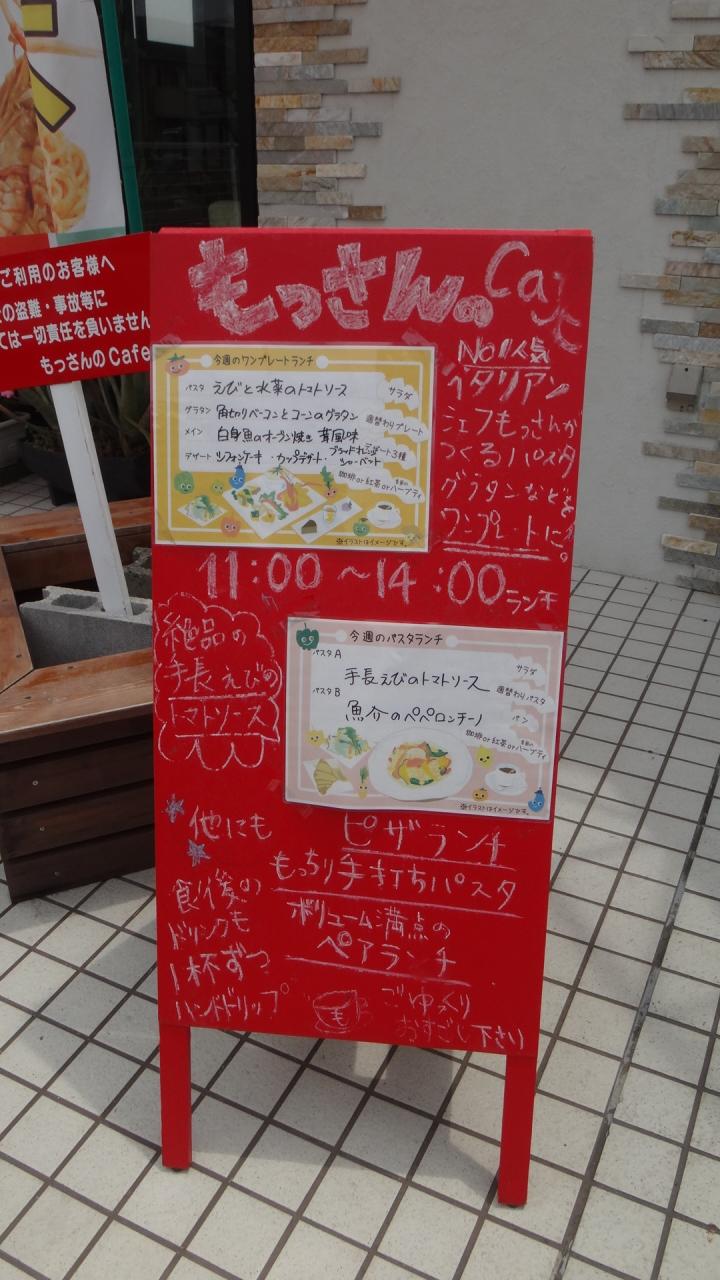 ト
ご利用のお客様へ
の盗難・事故等に
ては一切責任を負いません
もっさんのCafe
もっさんのCafe
No1人気
イタリアン
シェフもっさんが
つくるパスタ
グラタンなどを
ワンプレートに。
今週のワンプレートランチ
パスタ えびと水菜のトマトソース
サラダ
グラタン 角切りベーコンとコーンのグラタン
週替わりプレート
メイン 白身魚のオーブン焼き 茸風味
デザート3種
デザート シフォンケーキ ・カップデザート・ブラッドオレンジシャーベット
珈琲or紅茶orハーブティ
※イラストはイメージです。
11:00〜14:00ランチ
絶品の
手長えびの
トマトソース
今週のパスタランチ
パスタA
手長えびのトマトソース
サラダ
週替わりパスタ
パスタB
魚介のペペロンチーノ
パン
珈琲or紅茶orハーブティ
※イラストはイメージです。
他にも
ピザランチ
もっちり手打ちパスタ
ボリューム満点の
ペアランチ
食後の
ドリンクも
1杯ずつ
ハンドドリップ
も
ごゆっくり
おすごし下さい